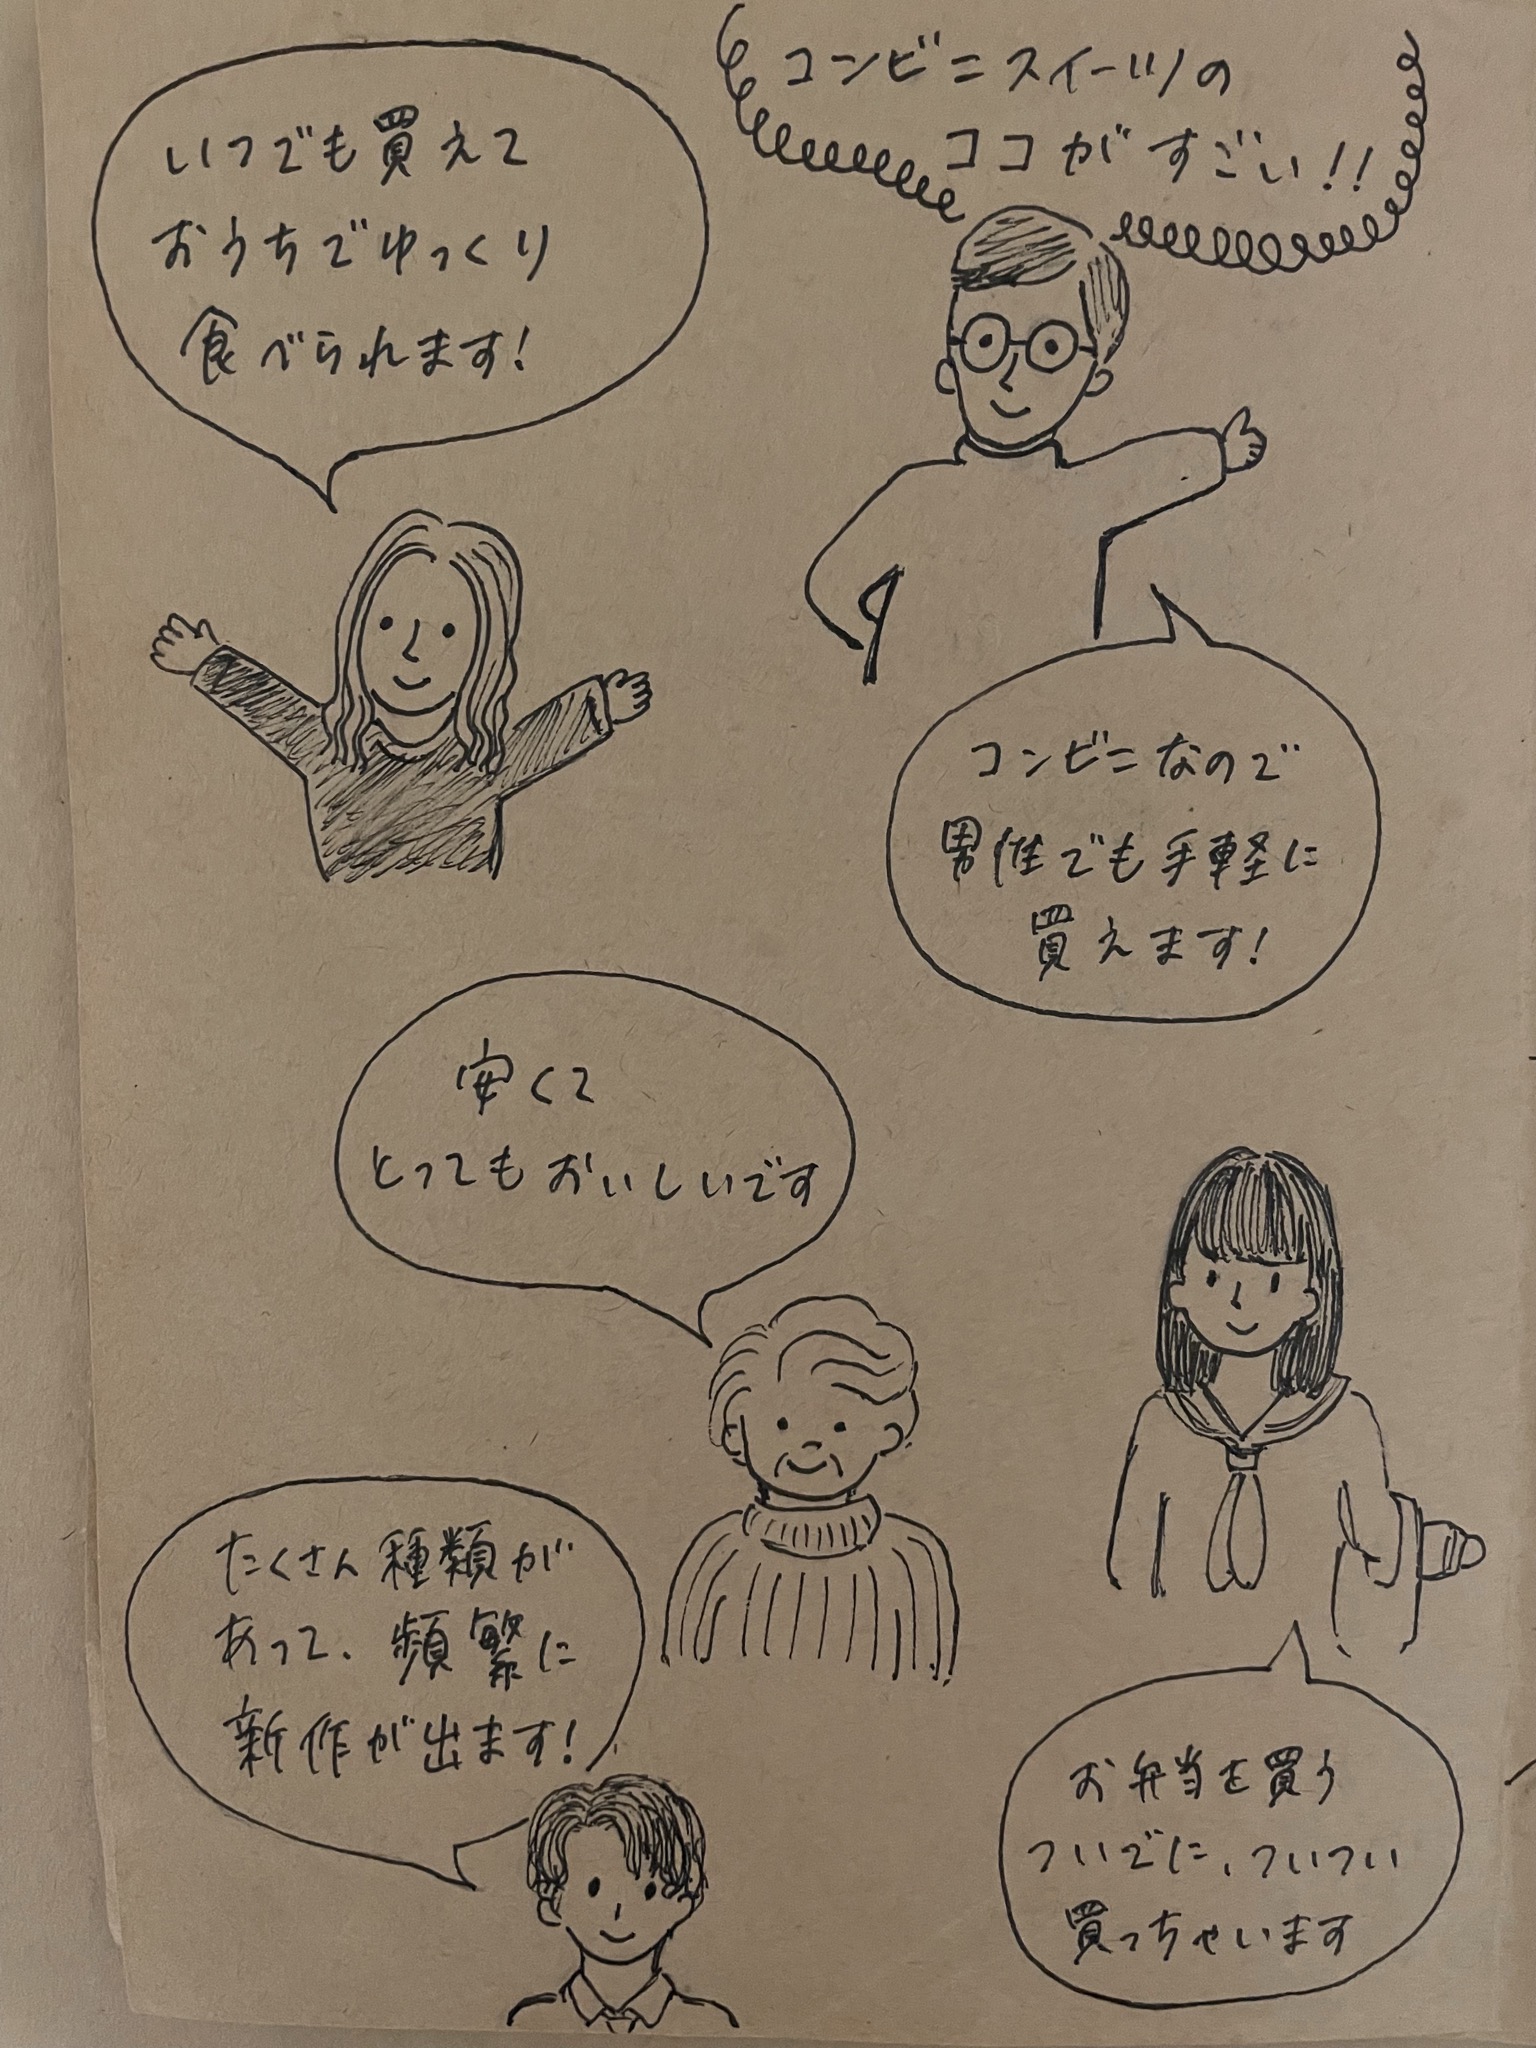 コンビニスイーツの
ココがすごい!!
いつでも買えて
おうちでゆっくり
食べられます!
コンビニなので
男性でも手軽に
買えます!
安くて
とってもおいしいです
たくさん種類が
あって、頻繁に
新作が出ます!
お弁当を買う
ついでに、ついつい
買っちゃいます